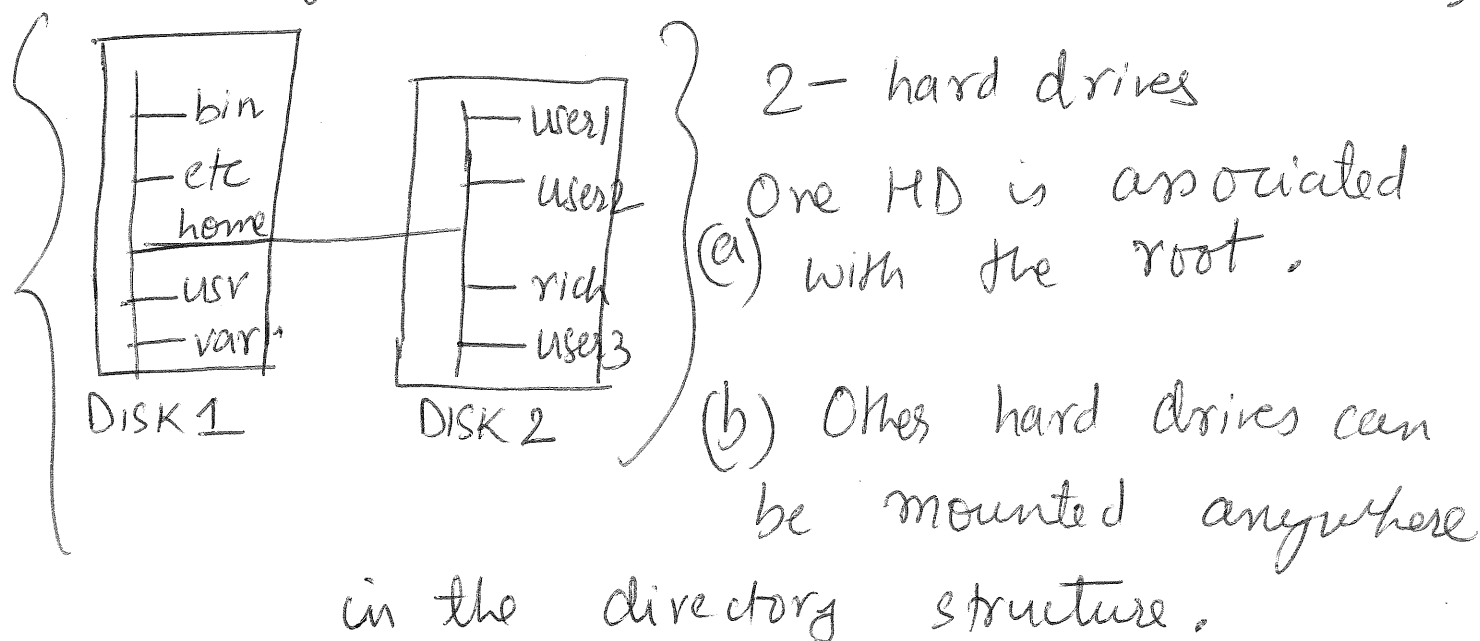 bin
etc
home
usr
var
DISK 1
user1
user2
rich
user3
DISK 2
2 - hard drives
One HD is associated
(a) with the root.
(b) Other hard drives can
be mounted anywhere
in the directory structure.